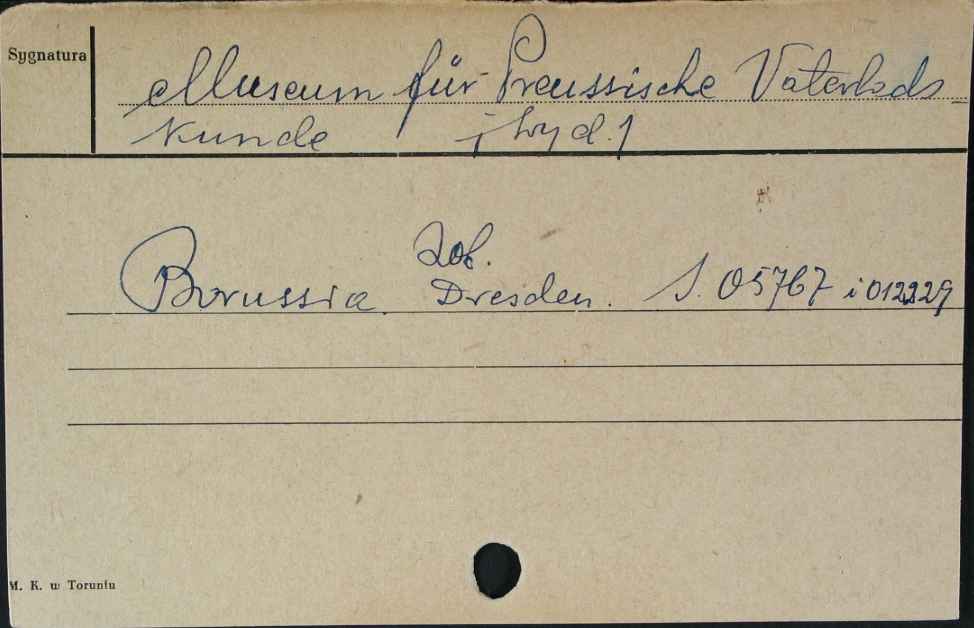 Sygnatura
Museum für Preussische Vaterlads=
kunde [wyd.]
Zob.
Borussia. Dresden. S. 05767 i 012229
M. K. w Toruniu